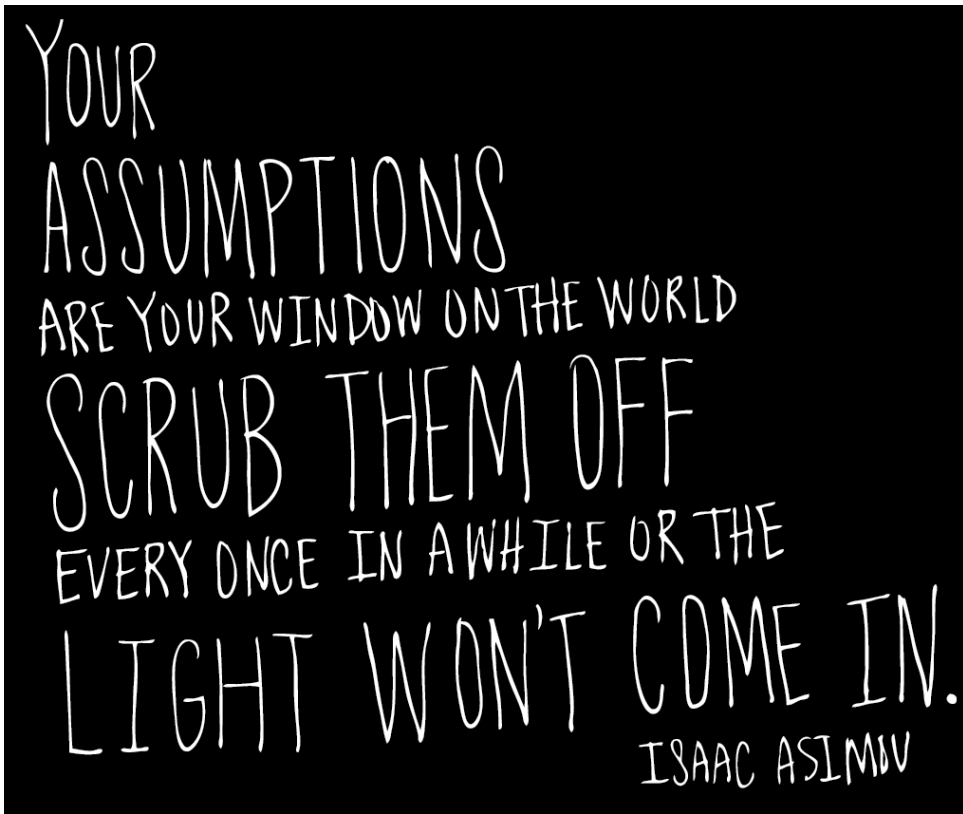 YOUR
ASSUMPTIONS
ARE YOUR WINDOW ON THE WORLD
SCRUB THEM OFF
EVERY ONCE IN AWHILE OR THE
LIGHT WON'T COME IN.
ISAAC ASIMOV